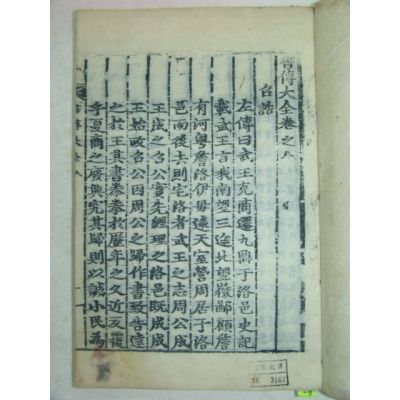 書傳大全卷之八
召誥
左傳曰武王克商遷九鼎于洛邑史記
載武王言我南望三途北望嶽鄙顧詹
有河粤詹洛伊毋遠天室營周居于洛
邑而後去則宅洛者武王之志周公成
王成之召公實先經理之洛邑既成成
王始政召公因周公之歸作書致告達
之於王其書拳拳於歷年之久近反覆
乎夏商之廢興究其歸則以諴小民為
3193